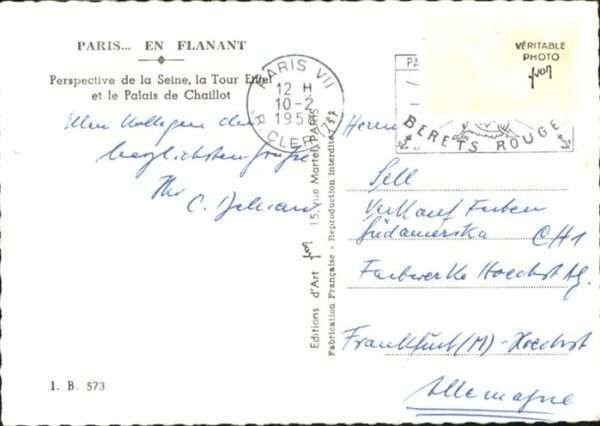 PARIS... EN FLANANT
Perspective de la Seine, la Tour Eiffel
et le Palais de Chaillot
Allen Kollegen die
herzlichsten Grüße
Ihr
C.
1. B. 573
PARIS VII
12 H
10-2
195
R CLER (7e)
PA
BERETS ROUGE
VÉRITABLE
PHOTO
yvon
Editions d'Art yvon 15, rue Martel, PARIS
Fabrication Française - Reproduction Interdite
Herrn
Sell
Verkauf Farben
Südamerika CH1
Farbwerke Hoechst AG.
Frankfurt (M)-Hoechst
Allemagne